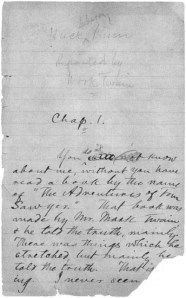 Huck Finn
reported by
Mark Twain
Chap. 1.
You do not know
about me, without you have
read a book by the name
of "The Adventures of Tom
Sawyer." That book was
made by Mr. Mark Twain
& he told the truth, mainly.
There was things which he
stretched, but mainly he
told the truth. That is
I never seen